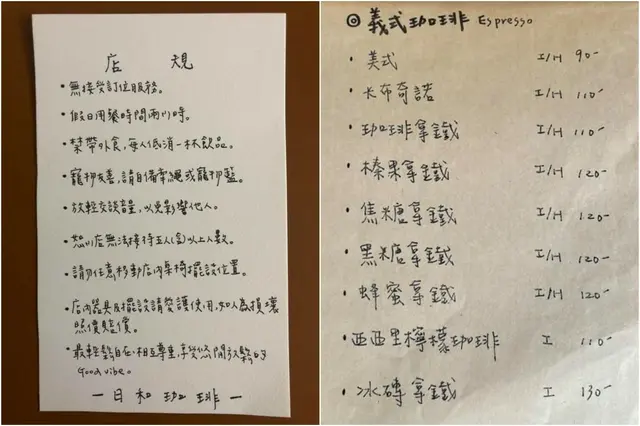 店規
・無接受訂位服務。
・假日用餐時間兩小時。
・禁帶外食,每人低消一杯飲品。
・寵物友善,請自備牽繩或寵物籃。
・放輕交談音量,以免影響他人。
・恕小店無法接待五人(含)以上人數。
・請勿任意移動店內桌椅擺設位置。
・店內器具及擺設請愛護使用,如人為損壞
照價賠償。
・最輕鬆自在,相互尊重,享受悠閒放鬆的
Good vibe。
一日和珈琲一
◎義式珈琲 Espresso
・美式 I/H 90-
・卡布奇諾 I/H 110-
・珈琲拿鐵 I/H 110-
・榛果拿鐵 I/H 120-
・焦糖拿鐵 I/H 120-
・黑糖拿鐵 I/H 120-
・蜂蜜拿鐵 I/H 120-
・西西里檸檬珈琲 I 110-
・冰磚拿鐵 I 130-